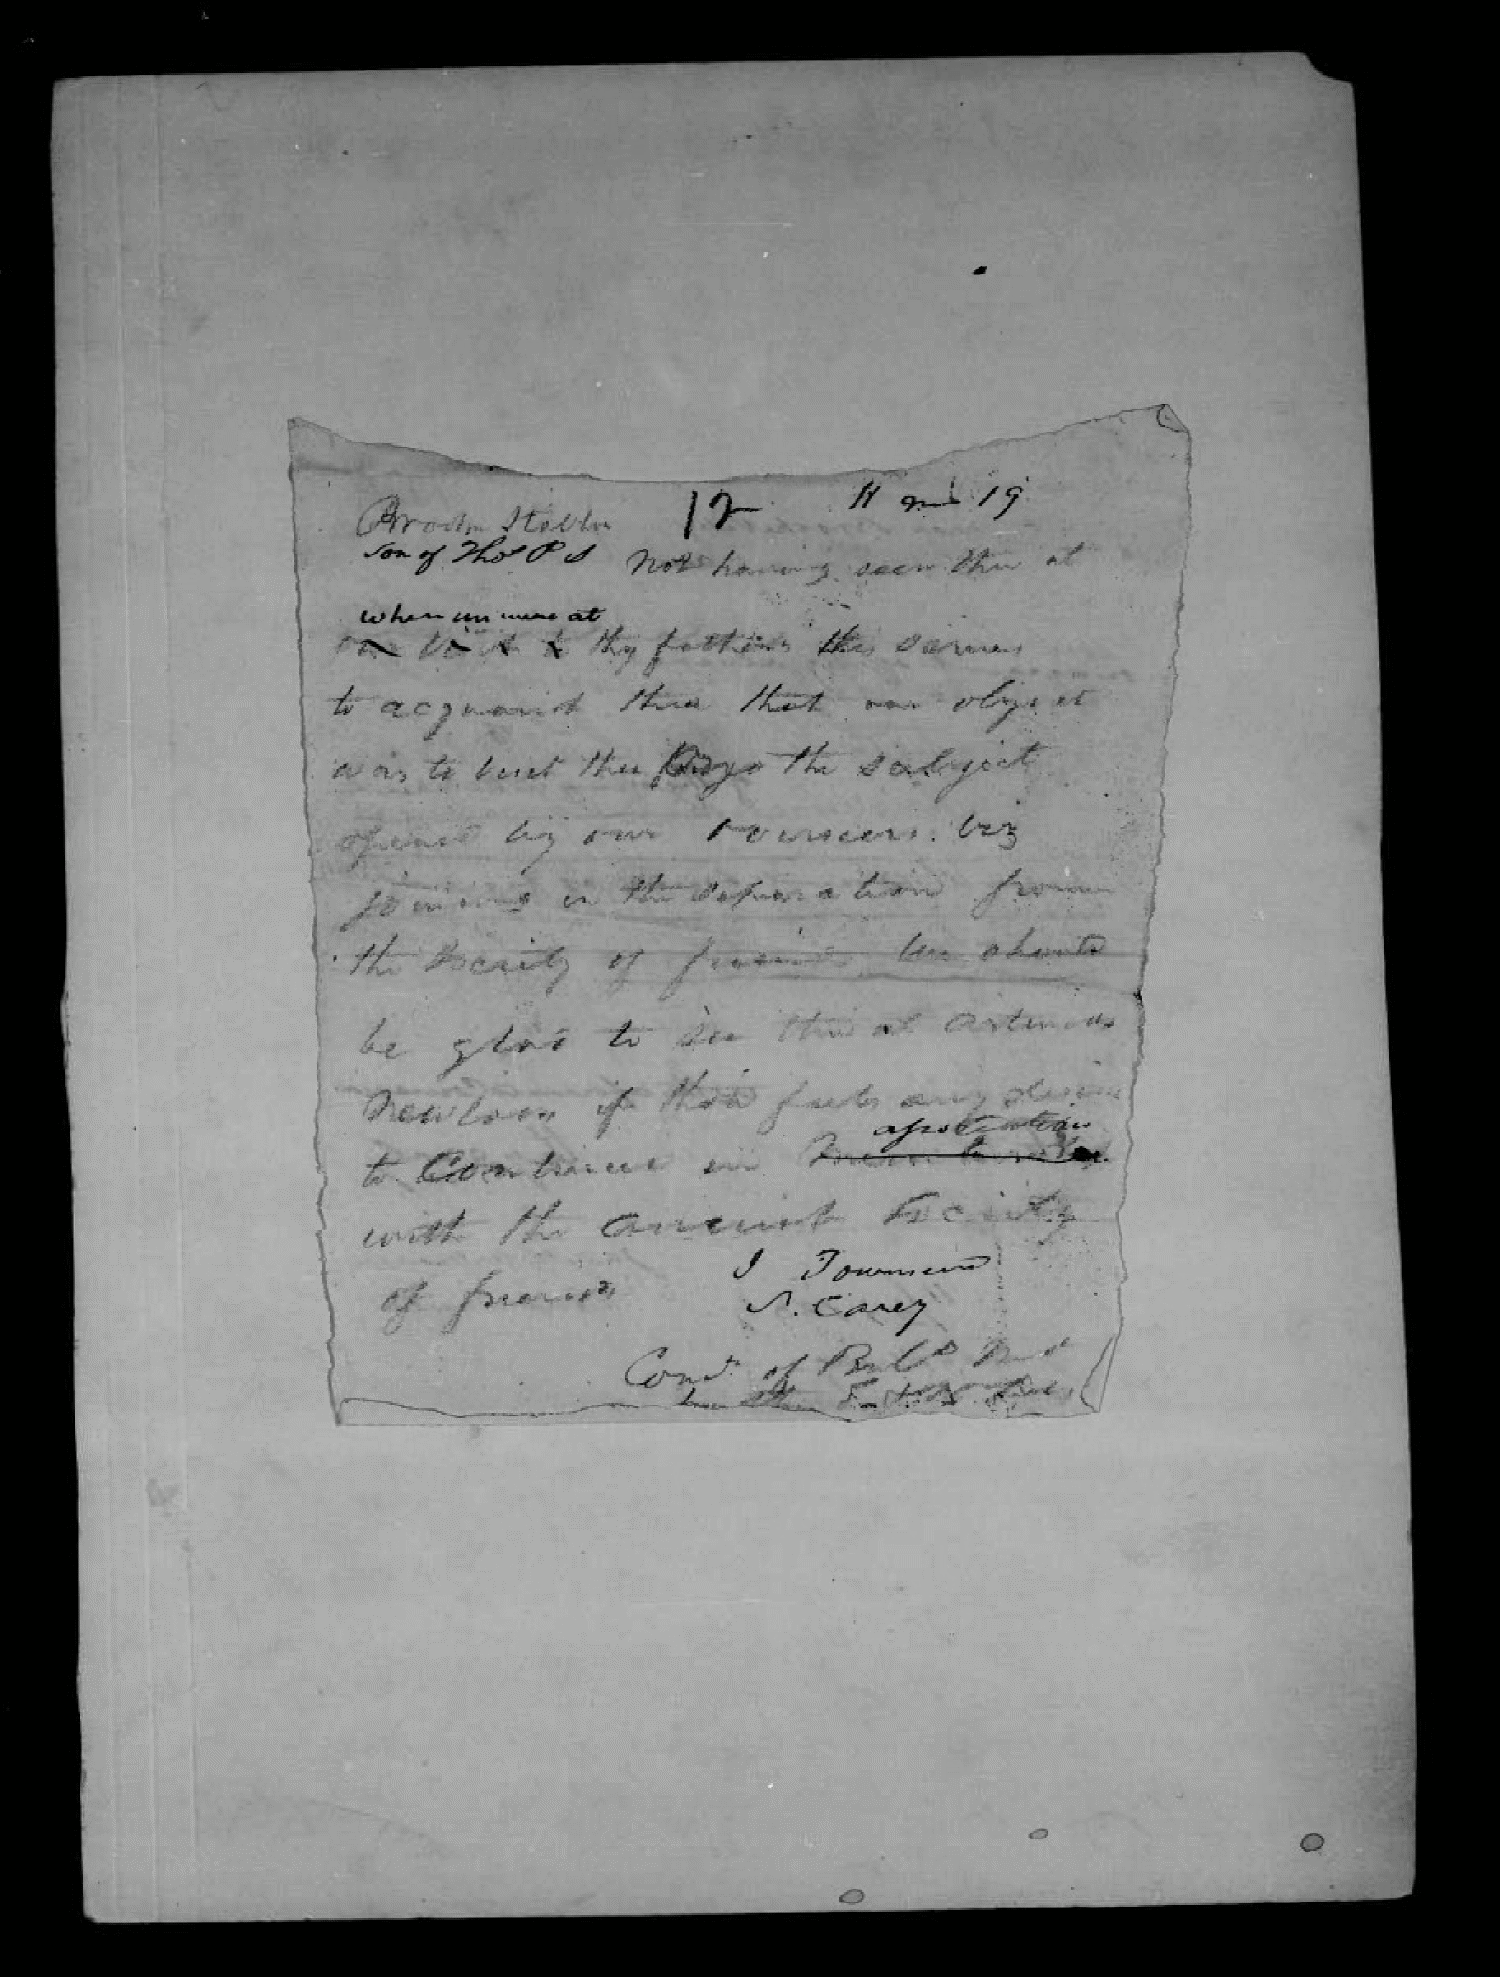 Brooke Stabler 12 11 mo 19
son of Thos P S Not having seen thee at
when we were at
our visit to thy fathers this serves
to acquaint thee that our object
was to visit thee the subject
opened by our overseers. viz
joining in the separation from
the Society of friends. We should
be glad to see thee at
if thou feels any desire
association
to Continue in Membership
with the ancient Society
of friends
I Townsend
S. Carey
Comt. of Balto